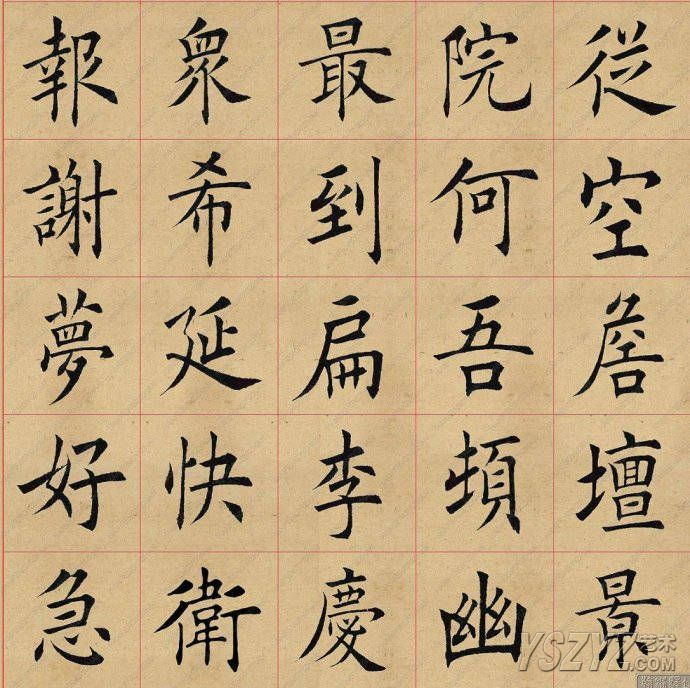 従空詹壇景
院何吾頓幽
最到扁李慶
衆希延快衛
報謝夢好急
YSZYZ艺术